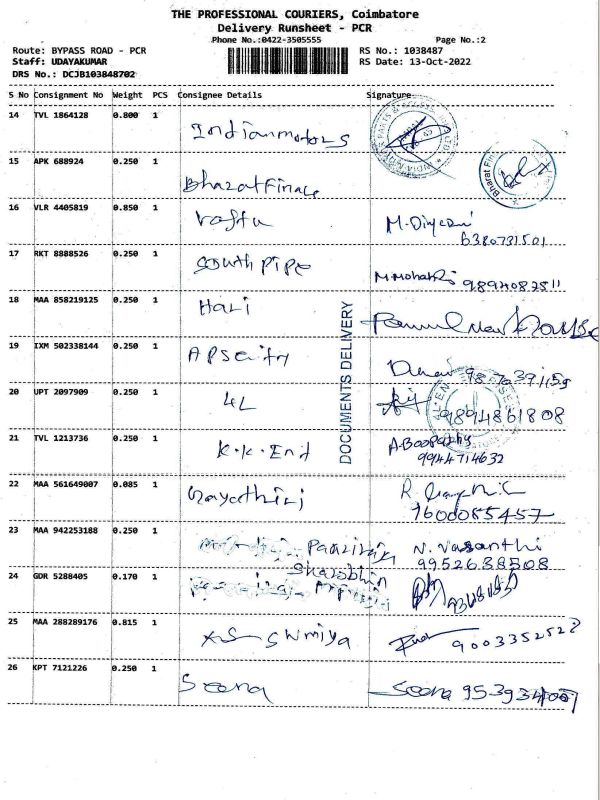 THE PROFESSIONAL COURIERS, Coimbatore
Delivery Runsheet - PCR
Phone No.:0422-3505555
Page No.:2
Route: BYPASS ROAD - PCR
RS No.: 1038487
Staff: UDAYAKUMAR
RS Date: 13-Oct-2022
DRS No.: DCJB103848702
S No Consignment No Weight PCS Consignee Details Signature
14 TVL 1864128 0.800 1 Indianmotors
15 APK 688924 0.250 1 BharatFinace
16 VLR 4405819 0.850 1
6380731501
17 RKT 8888526 0.250 1 South Pipe 9894082511
18 MAA 858219125 0.250 1 Hari
DOCUMENTS DELIVERY
19 IXM 502338144 0.250 1
20 UPT 2097909 0.250 1 4L 9894861808
21 TVL 1213736 0.250 1 K.K. A.Boopathy
9944714632
22 MAA 561649007 0.085 1 Gayathiri R.
7600085457
23 MAA 942253188 0.250 1 N. Vasanthi
9952688508
24 GDR 5288405 0.170 1
25 MAA 288289176 0.815 1 Sowmiya
26 KPT 7121226 0.250 1 Seena Seena